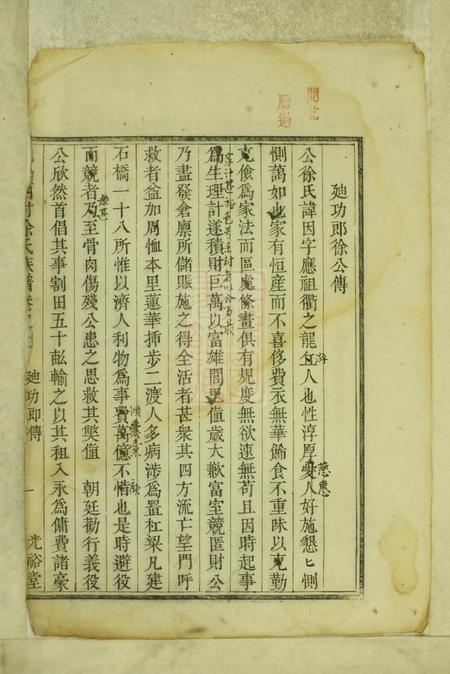 閱完
謄過
廸功郎徐公傳
公徐氏諱因字應祖衢之龍游人也性淳厚愛人好施懇ヒ惻
慈惠
惻萬如也家有恒產而不喜侈費衣無華飾食不重味以克勤
克儉爲家法而區處條畫俱有規度無欲速無苟且因時起事
爲生理計遂積財巨萬以富雄閭里值歲大歉富室競匿財公
乃盡發倉廪所儲賑施之得全活者甚衆其四方流亡望門呼
救者益加周恤本里蓮華挿步二渡人多病涉爲置杠梁凡建
石橋一十八所惟以濟人利物爲事費萬億不惜也是時避役
而競者乃至骨肉傷殘公患之思救其獘值 朝廷勸行義役
公欣然首倡其事割田五十畝輸之以其租入永爲傭費諸豪
徐氏族譜卷
廸功郎傳
一
光裕堂